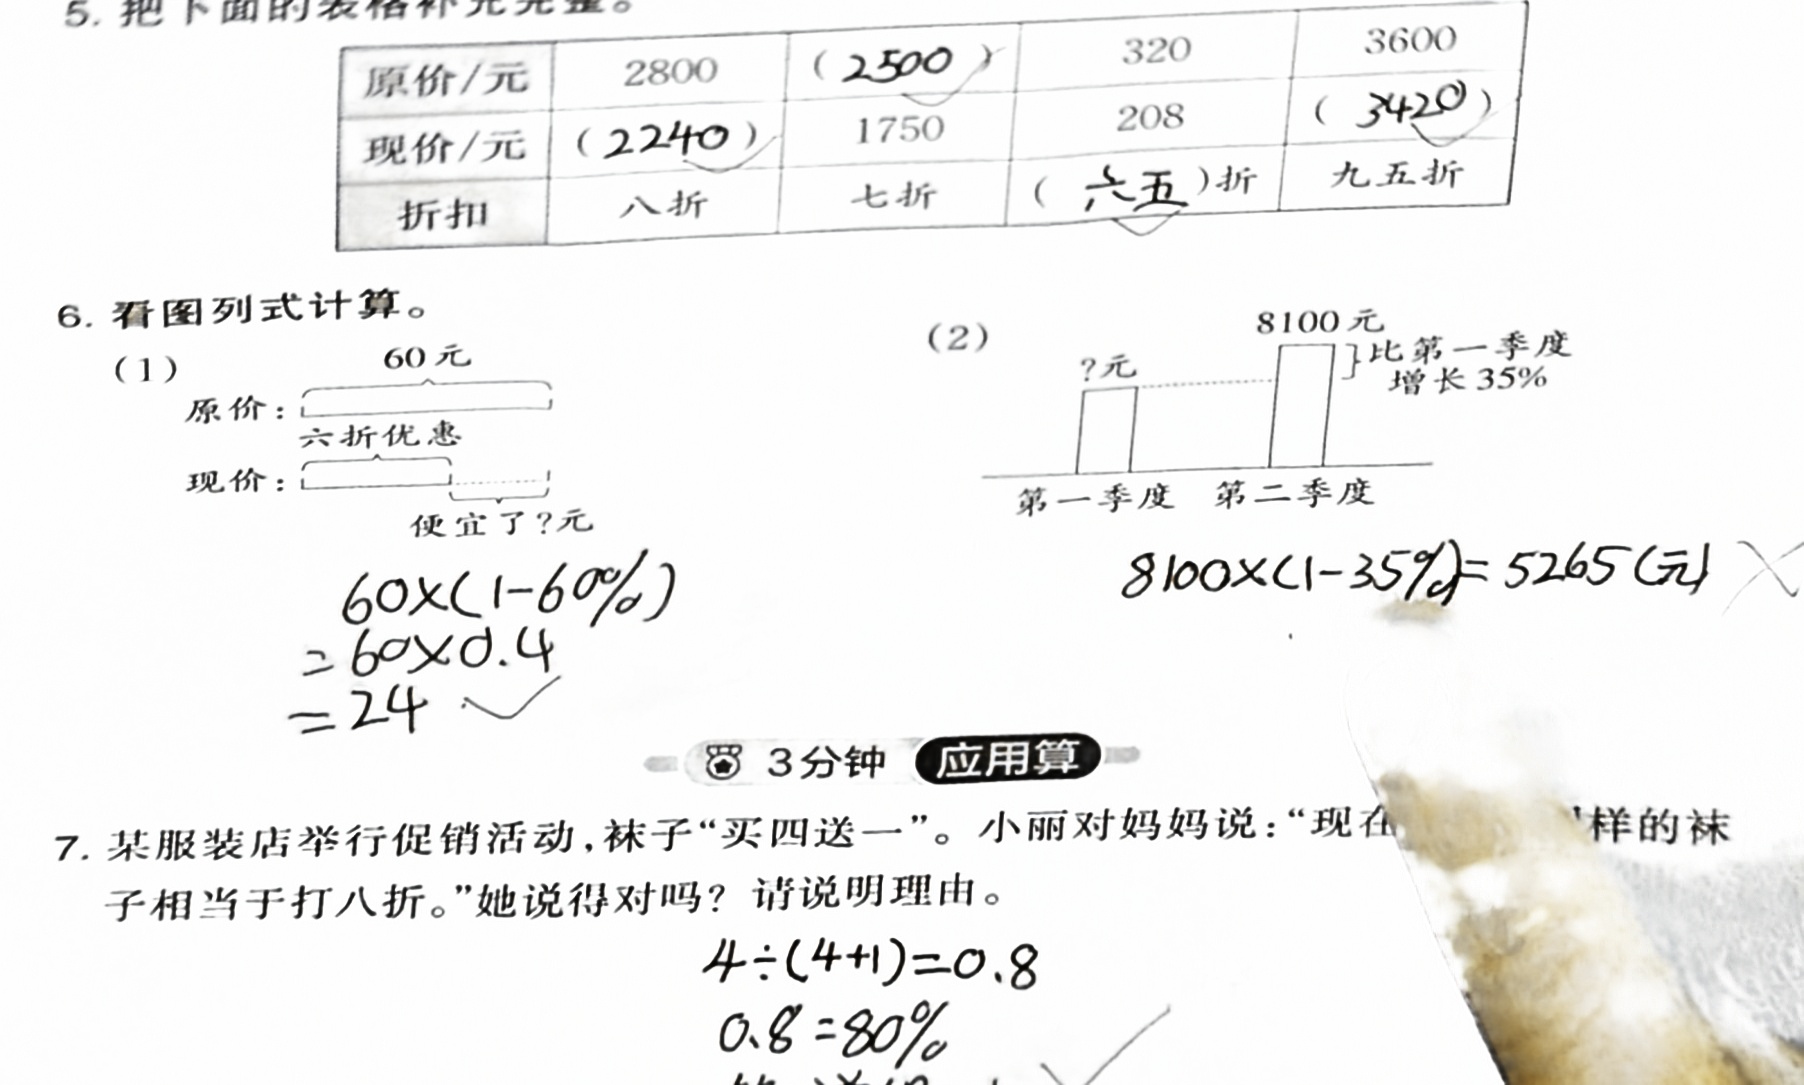 5. 把下面的表格补充完整。
原价/元 2800 (2500) 320 3600
现价/元 (2240) 1750 208 (3420)
折扣 八折 七折 (六五)折 九五折
6. 看图列式计算。
(1)
60元
原价:
六折优惠
现价:
便宜了?元
60×(1-60%)
=60×0.4
=24
(2)
8100元
?元
比第一季度
增长35%
第一季度 第二季度
8100×(1-35%)=5265(元)
3分钟 应用算
7. 某服装店举行促销活动,袜子“买四送一”。小丽对妈妈说:“现在 样的袜
子相当于打八折。”她说得对吗? 请说明理由。
4÷(4+1)=0.8
0.8=80%